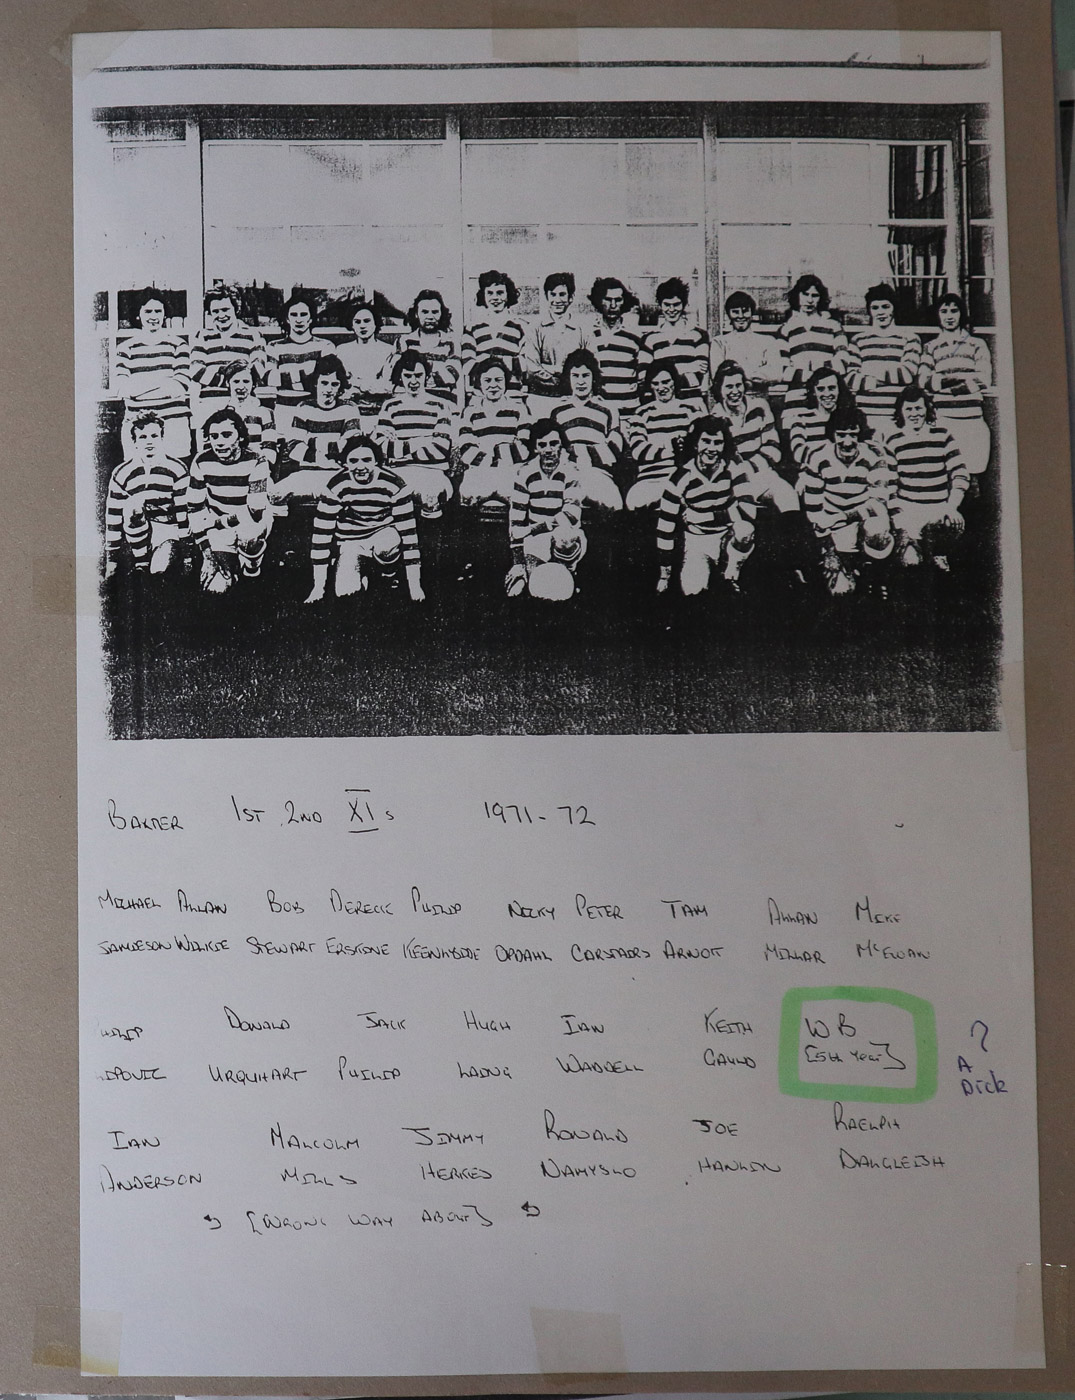 BAXTER 1ST 2ND XIs 1971-72
MICHAEL ALLAN BOB DERECK PHILIP NICKY PETER TAM ALLAN MIKE
JAMIESON WILKIE STEWART ERSKINE KEENLYSIDE OPDAHL CARSTAIRS ARNOTT MILLAR McEWAN
DONALD JACK HUGH IAN KEITH WB ?
URQUHART PHILIP LAING WADDELL GAULD [5th Year] A Dick
IAN MALCOLM JIMMY RONALD JOE RAELPH
ANDERSON MILLS HERKES NAMYSLO HANLON DALGLEISH
[WRONG WAY ABOUT]